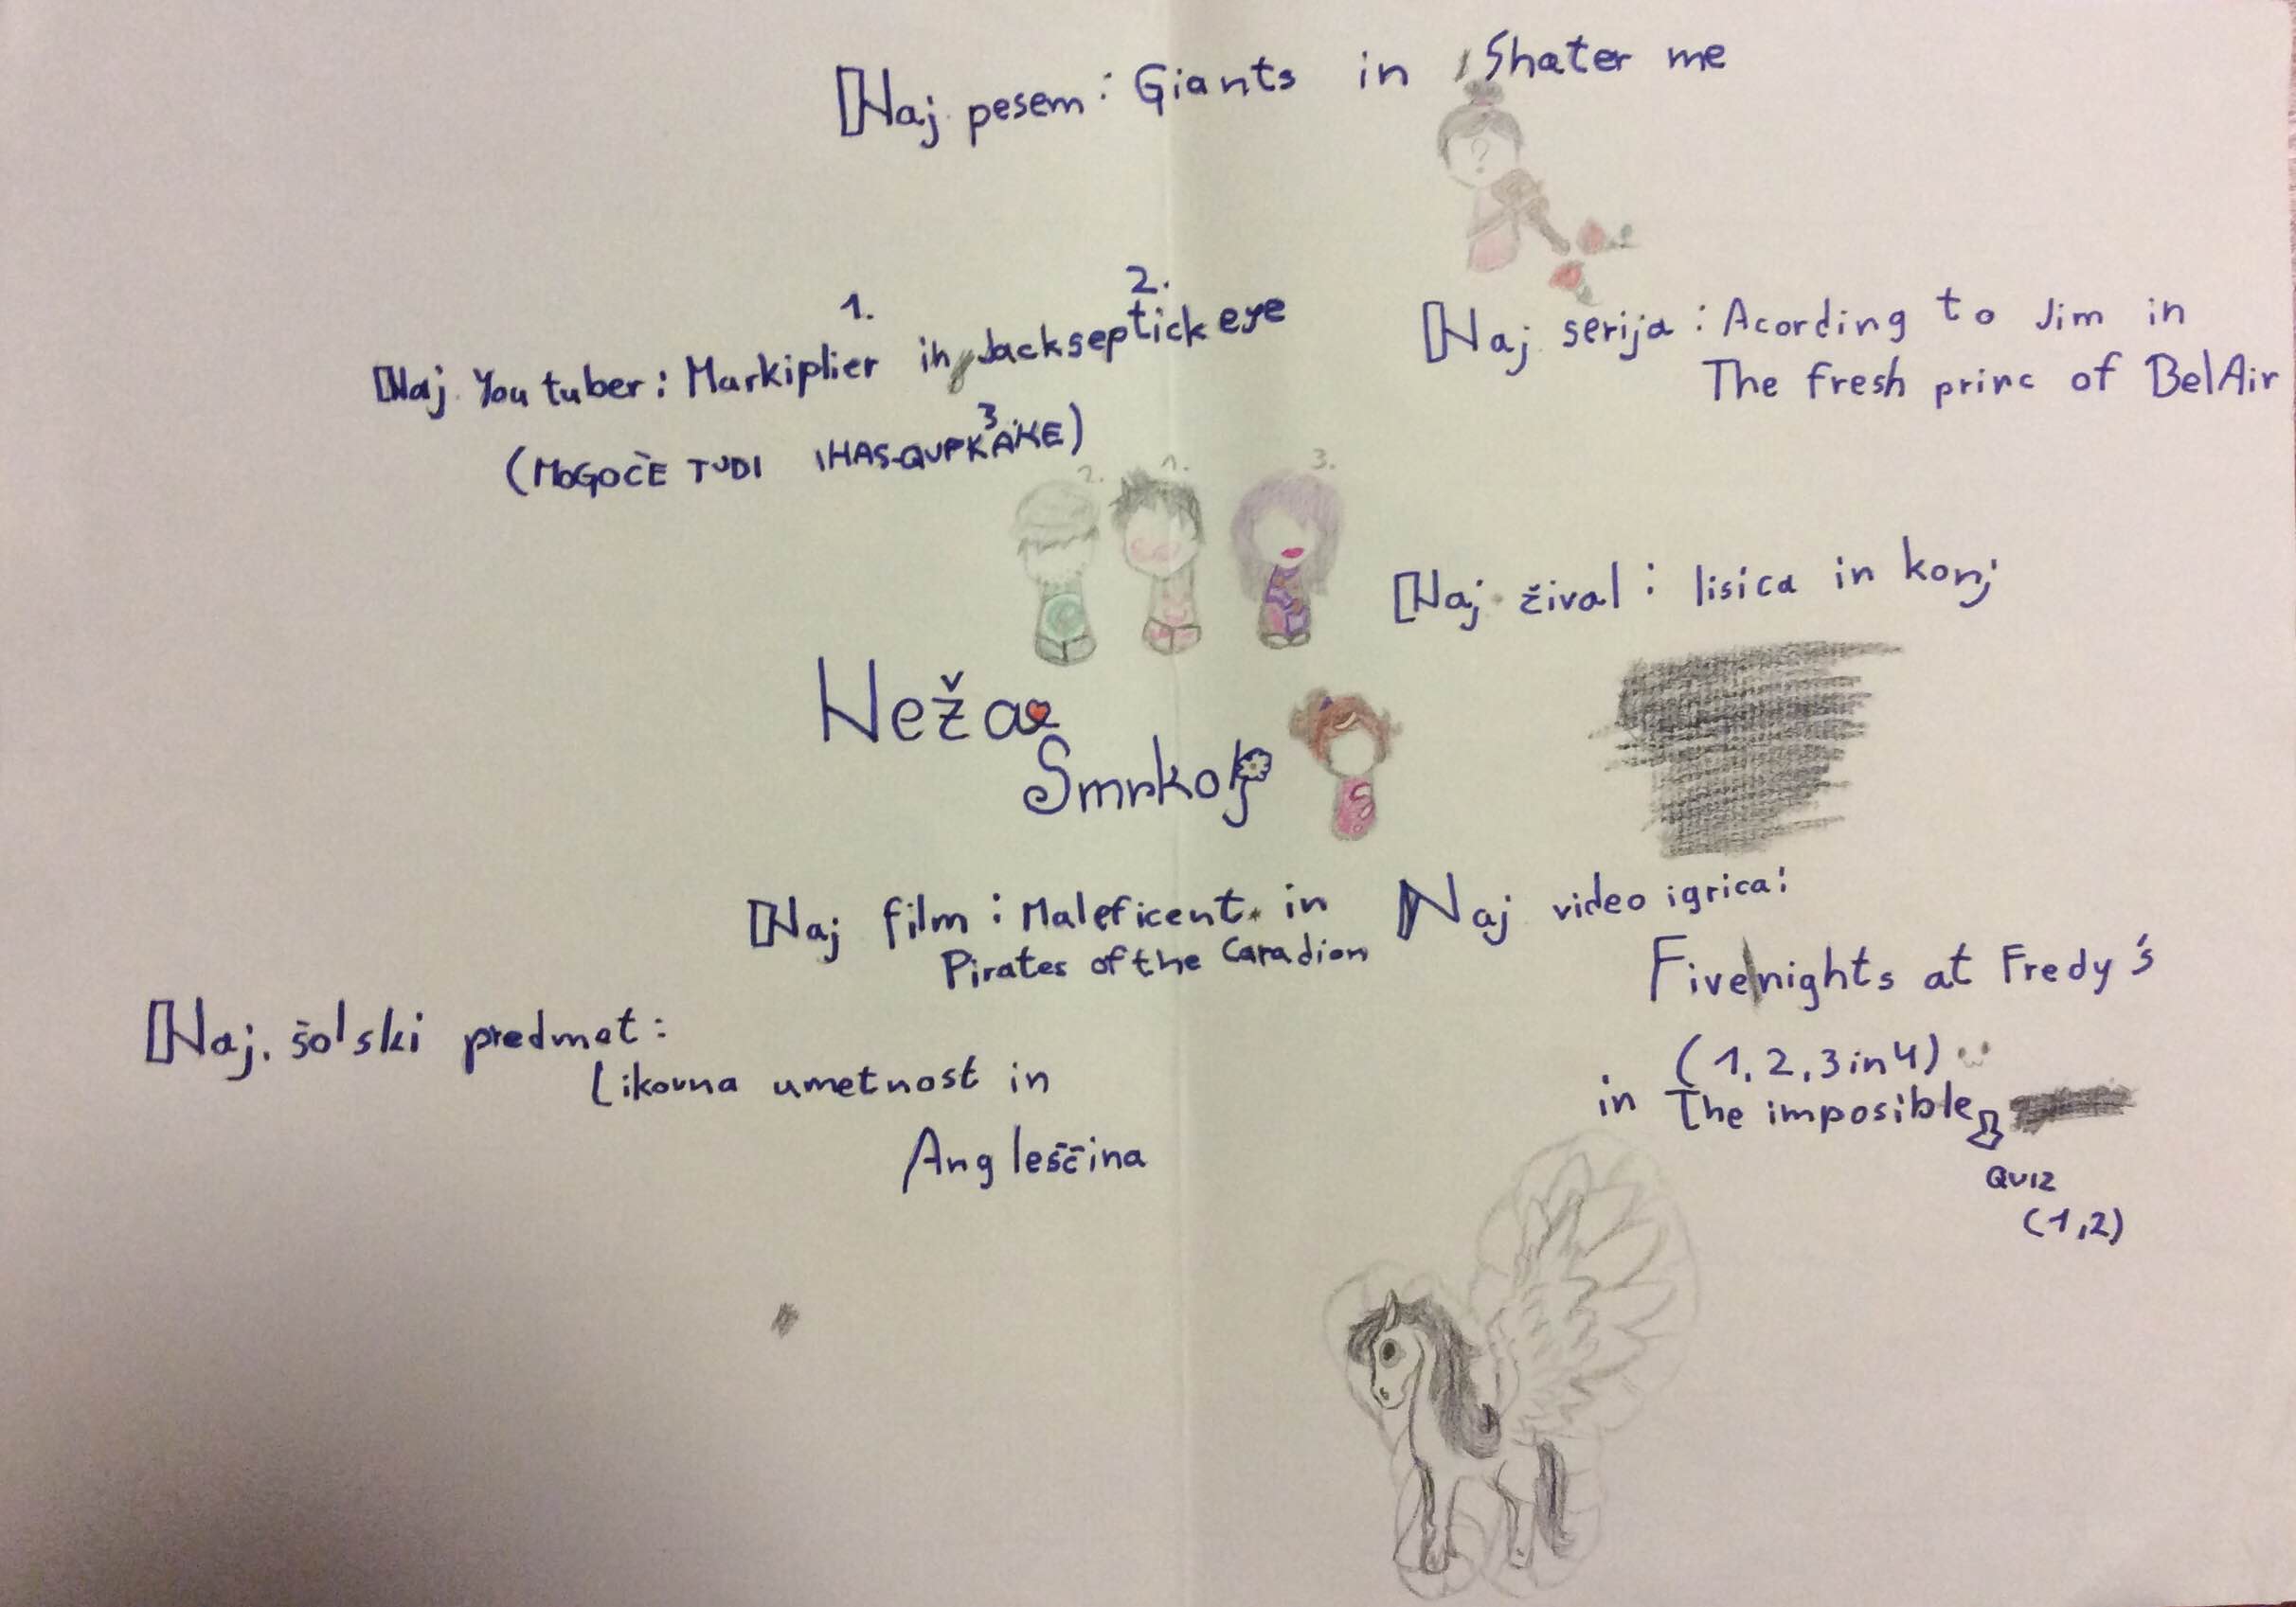 Naj pesem: Giants in Shater me
1.
2.
Naj You tuber: Markiplier in Jackseptick eye
3
(MOGOČE TUDI IHASQUPKAKE)
2. 1. 3.
Naj serija: Acording to Jim in
The fresh princ of BelAir
Naj žival: lisica in konj
Neža
Smrkolj
Naj film: Maleficent in
Pirates of the Caradion
Naj video igrica:
Five nights at Fredy's
(1, 2, 3 in 4)
in The imposible
QUIZ
(1,2)
Naj. šolski predmet:
Likovna umetnost in
Angleščina
?